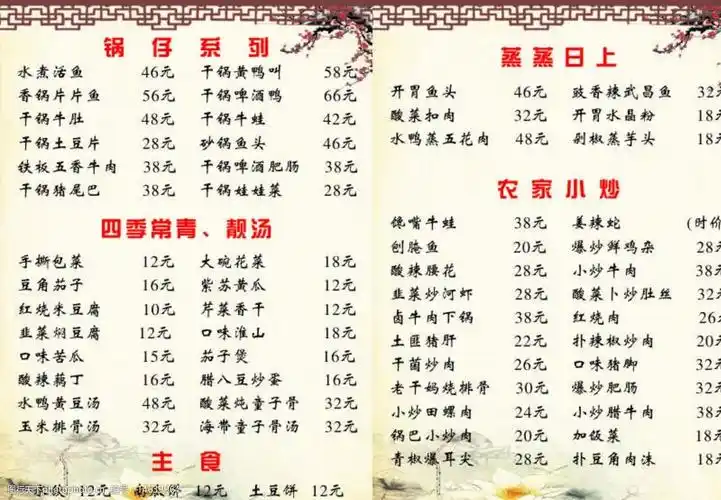 锅仔系列
水煮活鱼 46元 干锅黄鸭叫 58元
香锅片片鱼 56元 干锅啤酒鸭 66元
干锅牛肚 48元 干锅牛蛙 42元
干锅土豆片 28元 砂锅鱼头 46元
铁板五香牛肉 38元 干锅啤酒肥肠 38元
干锅猪尾巴 38元 干锅娃娃菜 28元
四季常青、靓汤
手撕包菜 12元 大碗花菜 18元
豆角茄子 16元 紫苏黄瓜 12元
红烧米豆腐 10元 芹菜香干 12元
韭菜焖豆腐 12元 口味淮山 18元
口味苦瓜 15元 茄子煲 16元
酸辣藕丁 16元 腊八豆炒蛋 16元
水鸭黄豆汤 48元 酸菜炖童子骨 32元
玉米排骨汤 32元 海带童子骨汤 32元
主食
饼 12元 土豆饼 12元
蒸蒸日上
开胃鱼头 46元 豉香辣武昌鱼 32
酸菜扣肉 32元 开胃水晶粉 18
水鸭蒸五花肉 48元 剁椒蒸芋头 18
农家小炒
馋嘴牛蛙 38元 姜辣蛇 (时价
刨腌鱼 20元 爆炒鲜鸡杂 28
酸辣腰花 28元 小炒牛肉 38
韭菜炒河虾 28元 酸菜卜炒肚丝 32
卤牛肉下锅 38元 红烧肉 26
土匪猪肝 22元 扑辣椒炒肉 20
干菌炒肉 26元 口味猪脚 32
老干妈烧排骨 30元 爆炒肥肠 32
小炒田螺肉 24元 小炒腊牛肉 38
锅巴小炒肉 20元 加饭菜 18
青椒爆耳尖 28元 扑豆角肉沫 18